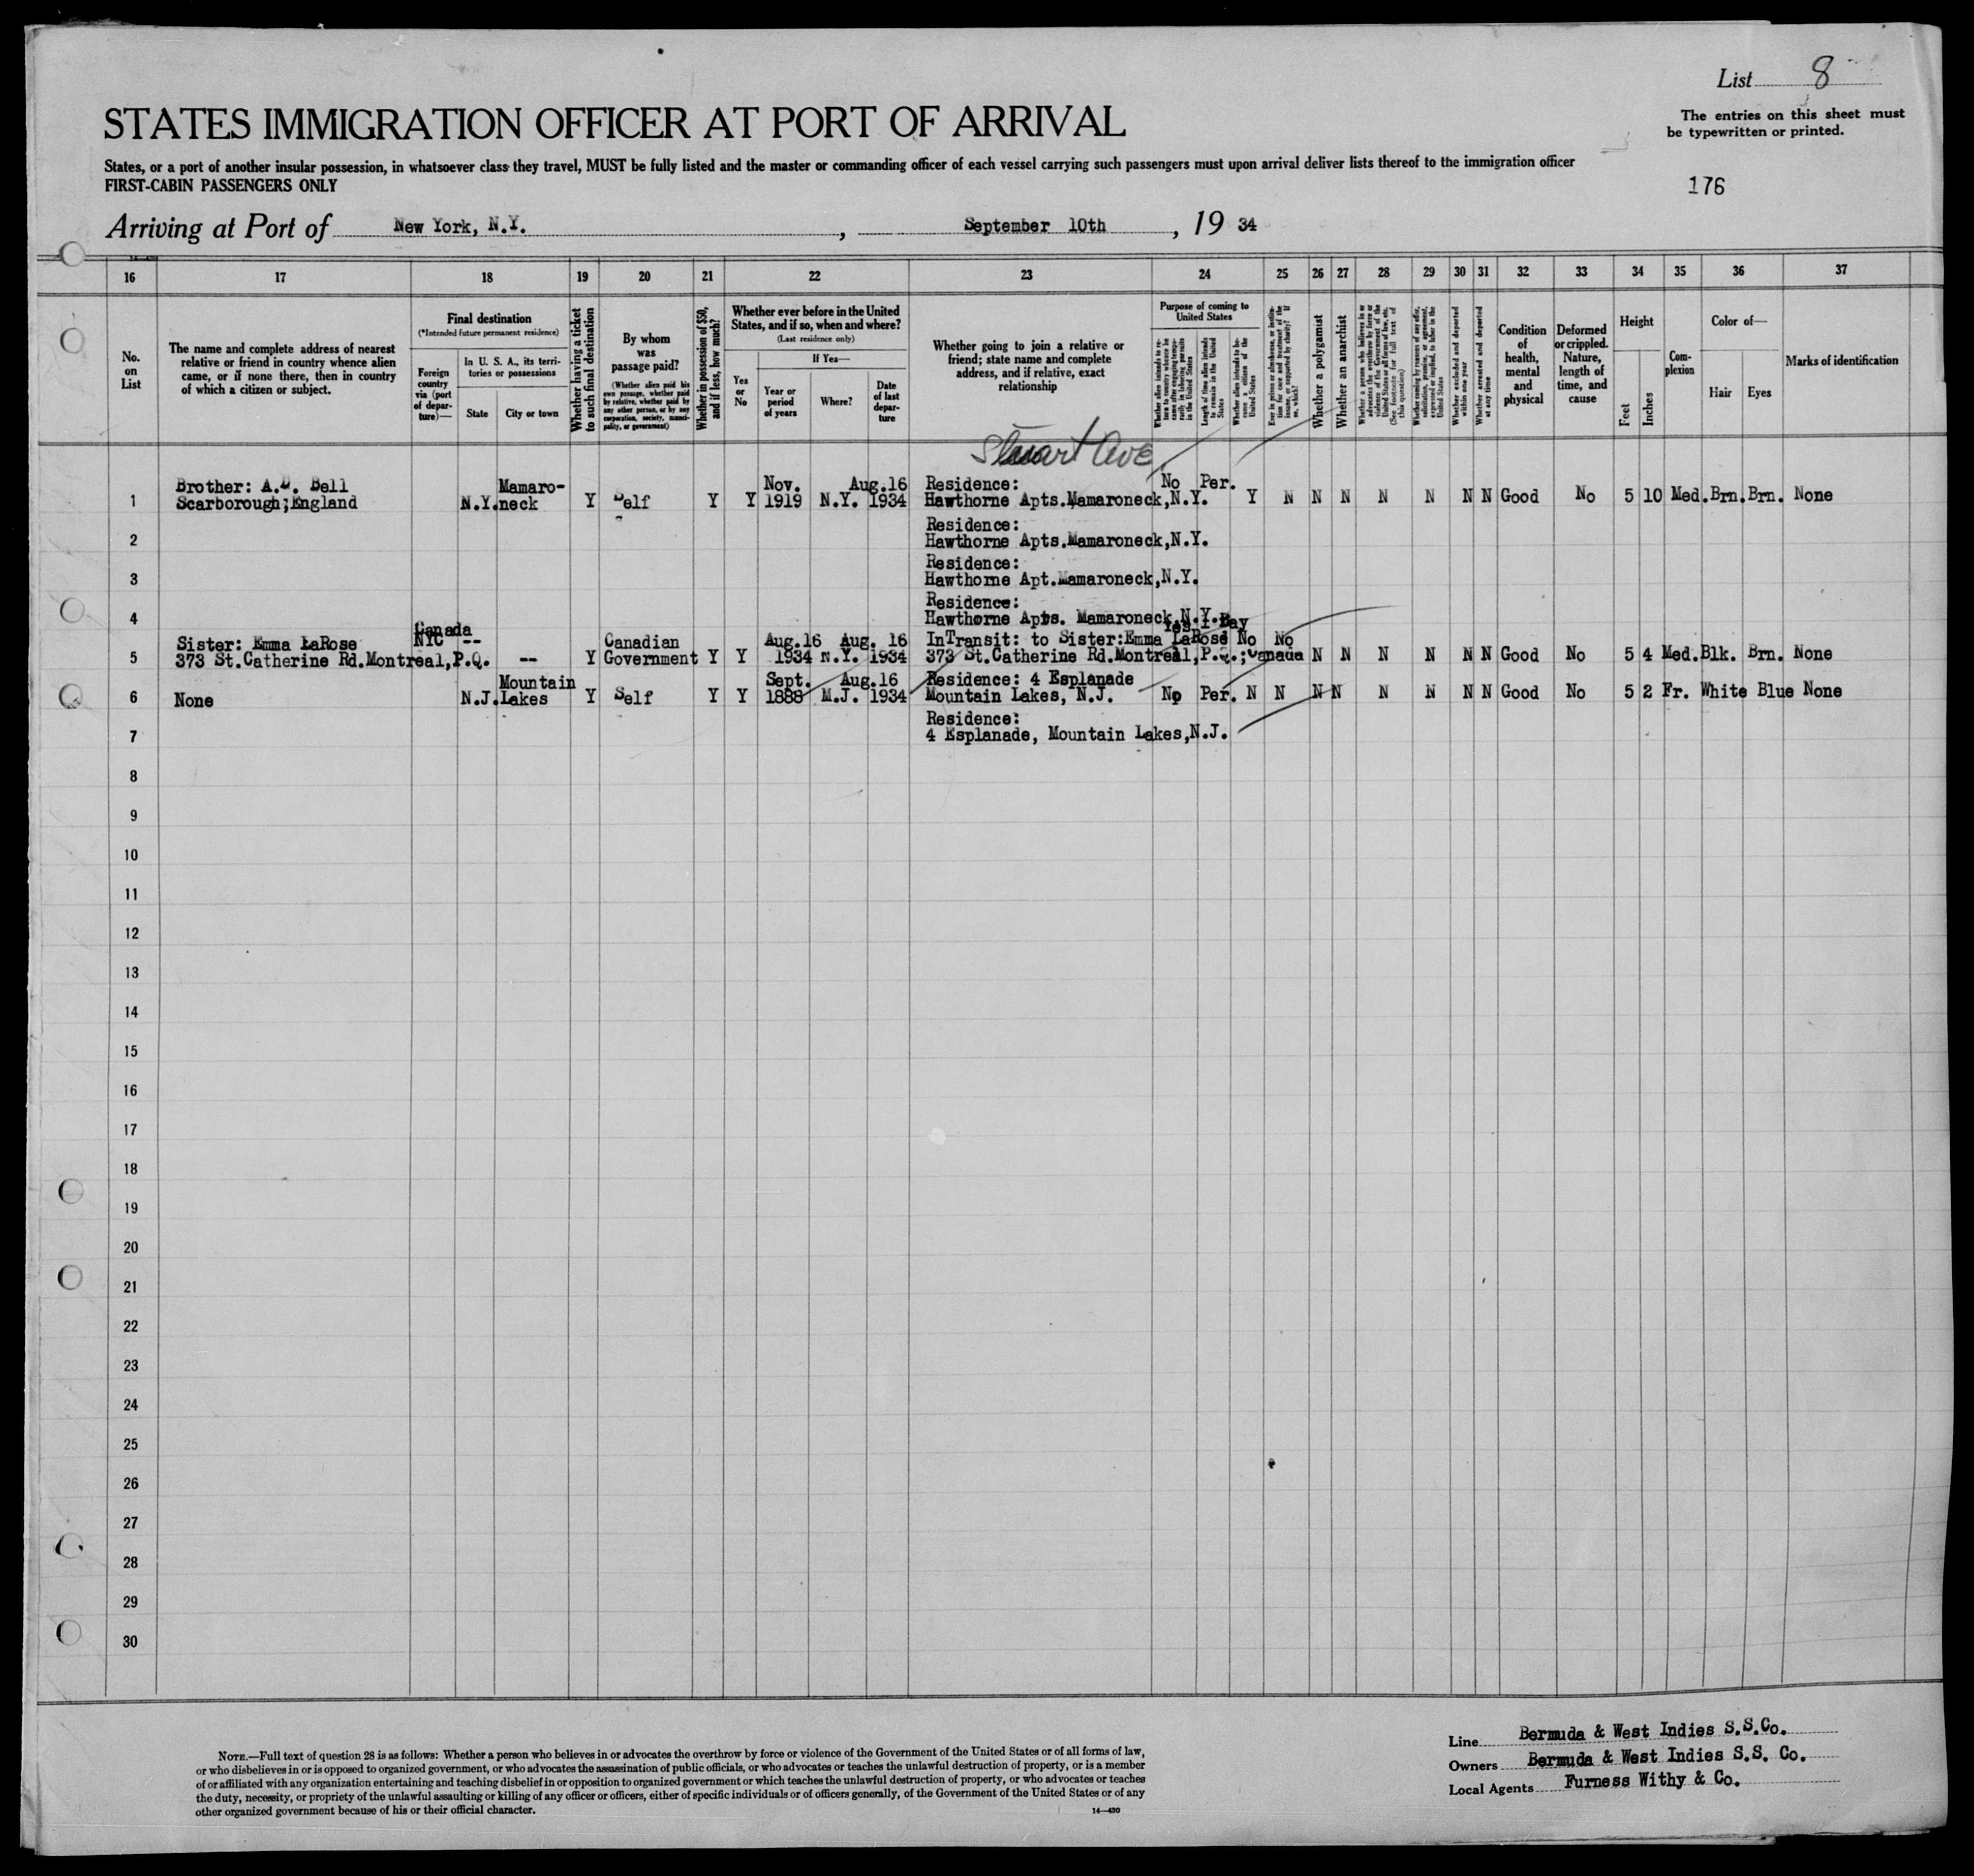 List 8
STATES IMMIGRATION OFFICER AT PORT OF ARRIVAL
The entries on this sheet must
be typewritten or printed.
States, or a port of another insular possession, in whatsoever class they travel, MUST be fully listed and the master or commanding officer of each vessel carrying such passengers must upon arrival deliver lists thereof to the immigration officer
FIRST-CABIN PASSENGERS ONLY
176
Arriving at Port of New York, N.Y. , September 10th , 19 34
16 17 18 19 20 21 22 23 24 25 26 27 28 29 30 31 32 33 34 35 36 37
No.
on
List
The name and complete address of nearest
relative or friend in country whence alien
came, or if none there, then in country
of which a citizen or subject.
Final destination
(*Intended future permanent residence)
Foreign
country
via (port
of depar-
ture)—
In U. S. A., its terri-
tories or possessions
State
City or town
Whether having a ticket
to such final destination
By whom
was
passage paid?
(Whether alien paid his
own passage, whether paid
by relative, whether paid by
any other person, or by any
corporation, society, munici-
pality, or government)
Whether in possession of $50,
and if less, how much?
Whether ever before in the United
States, and if so, when and where?
(Last residence only)
Yes
or
No
If Yes—
Year or
period
of years
Where?
Date
of last
depar-
ture
Whether going to join a relative or
friend; state name and complete
address, and if relative, exact
relationship
Purpose of coming to
United States
Whether alien intends to re-
turn to country whence he
came after engaging tempo-
rarily in laboring pursuits
in the United States
Length of time alien intends
to remain in the United
States
Whether alien intends to be-
come a citizen of the
United States
Ever in prison or almshouse, or institu-
tion for care and treatment of the
insane, or supported by charity? If
so, which?
Whether a polygamist
Whether an anarchist
Whether a person who believes in or
advocates the overthrow by force or
violence of the Government of the
United States or all forms of law, etc.
(See footnote for full text of
this question)
Whether coming by reason of any offer,
solicitation, promise, or agreement,
expressed or implied, to labor in the
United States
Whether excluded and deported
within one year
Whether arrested and deported
at any time
Condition
of
health,
mental
and
physical
Deformed
or crippled.
Nature,
length of
time, and
cause
Height
Feet
Inches
Com-
plexion
Color of—
Hair Eyes
Marks of identification
Stuart Ave
Brother: A.D. Bell Mamaro- Nov. Aug.16 Residence: No Per.
1 Scarborough;England N.Y.neck Y Self Y Y 1919 N.Y. 1934 Hawthorne Apts.Mamaroneck,N.Y. Y N N N N N N N Good No 5 10 Med.Brn.Brn. None
Residence:
2 Hawthorne Apts.Mamaroneck,N.Y.
Residence:
3 Hawthorne Apt.Mamaroneck,N.Y.
Residence:
4 Hawthorne Apts. Mamaroneck,N.Y.
Canada Yes 1 Day
Sister: Emma LaRose NYC -- Canadian Aug.16 Aug. 16 InTransit: to Sister:Emma LaRose No No
5 373 St.Catherine Rd.Montreal,P.Q. -- Y Government Y Y 1934 N.Y. 1934 373 St.Catherine Rd.Montreal,P.Q.;Canada N N N N N N Good No 5 4 Med.Blk. Brn. None
Mountain Sept. Aug.16 Residence: 4 Esplanade
6 None N.J.Lakes Y Self Y Y 1888 M.J. 1934 Mountain Lakes, N.J. No Per. N N N N N N N N Good No 5 2 Fr. White Blue None
Residence:
7 4 Esplanade, Mountain Lakes,N.J.
8
9
10
11
12
13
14
15
16
17
18
19
20
21
22
23
24
25
26
27
28
29
30
NOTE.—Full text of question 28 is as follows: Whether a person who believes in or advocates the overthrow by force or violence of the Government of the United States or of all forms of law,
or who disbelieves in or is opposed to organized government, or who advocates the assassination of public officials, or who advocates or teaches the unlawful destruction of property, or is a member
of or affiliated with any organization entertaining and teaching disbelief in or opposition to organized government or which teaches the unlawful destruction of property, or who advocates or teaches
the duty, necessity, or propriety of the unlawful assaulting or killing of any officer or officers, either of specific individuals or of officers generally, of the Government of the United States or of any
other organized government because of his or their official character.
14—430
Line Bermuda & West Indies S.S.Co.
Owners Bermuda & West Indies S.S. Co.
Local Agents Furness Withy & Co.